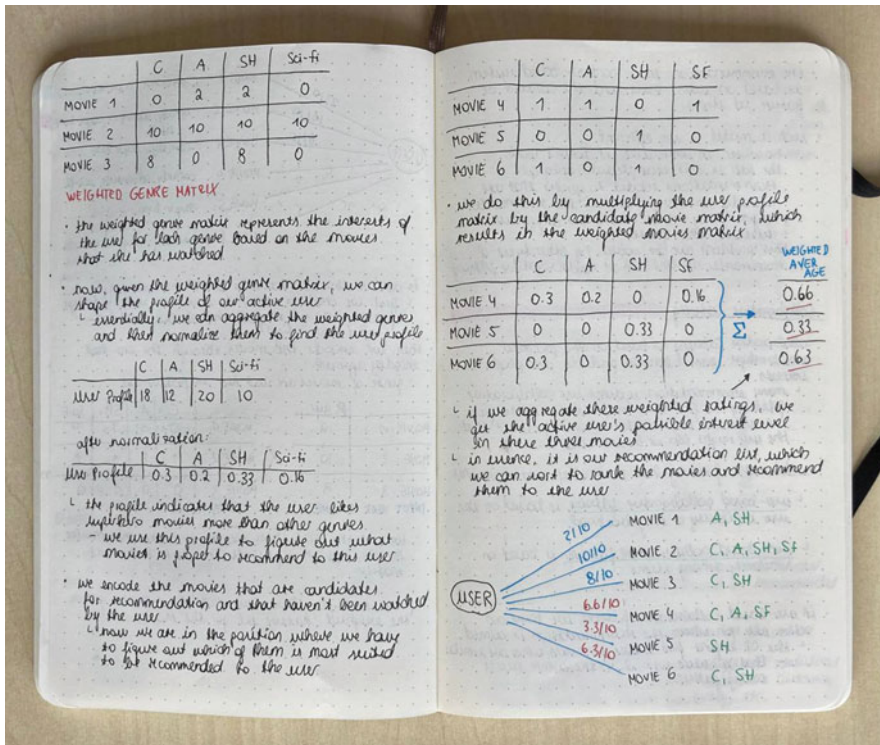 C A SH Sci-fi
MOVIE 1 0 2 2 0
MOVIE 2 10 10 10 10
MOVIE 3 8 0 8 0
WEIGHTED GENRE MATRIX
• the weighted genre matrix represents the interests of
the user for each genre based on the movies
that she has watched
• now, given the weighted genre matrix, we can
shape the profile of our active user
└ essentially, we can aggregate the weighted genres
and then normalize them to find the user profile
C A SH Sci-fi
User Profile 18 12 20 10
after normalization:
C A SH Sci-fi
User Profile 0.3 0.2 0.33 0.16
└ the profile indicates that the user likes
superhero movies more than other genres
- we use this profile to figure out what
movies is proper to recommend to this user
• we encode the movies that are candidates
for recommendation and that haven't been watched
by the user
└ now we are in the position where we have
to figure out which of them is most suited
to be recommended to the user
C A SH SF
MOVIE 4 1 1 0 1
MOVIE 5 0 0 1 0
MOVIE 6 1 0 1 0
• we do this by multiplying the user profile
matrix by the candidate movie matrix, which
results in the weighted movies matrix
C A SH SF
MOVIE 4 0.3 0.2 0 0.16
MOVIE 5 0 0 0.33 0
MOVIE 6 0.3 0 0.33 0
Σ
WEIGHTED
AVER
AGE
0.66
0.33
0.63
└ if we aggregate these weighted ratings, we
get the active user's possible interest level
in these three movies
└ in essence, it is our recommendation list, which
we can sort to rank the movies and recommend
them to the user
USER
2/10 MOVIE 1 A, SH
10/10 MOVIE 2 C, A, SH, SF
8/10 MOVIE 3 C, SH
6.6/10 MOVIE 4 C, A, SF
3.3/10 MOVIE 5 SH
6.3/10 MOVIE 6 C, SH